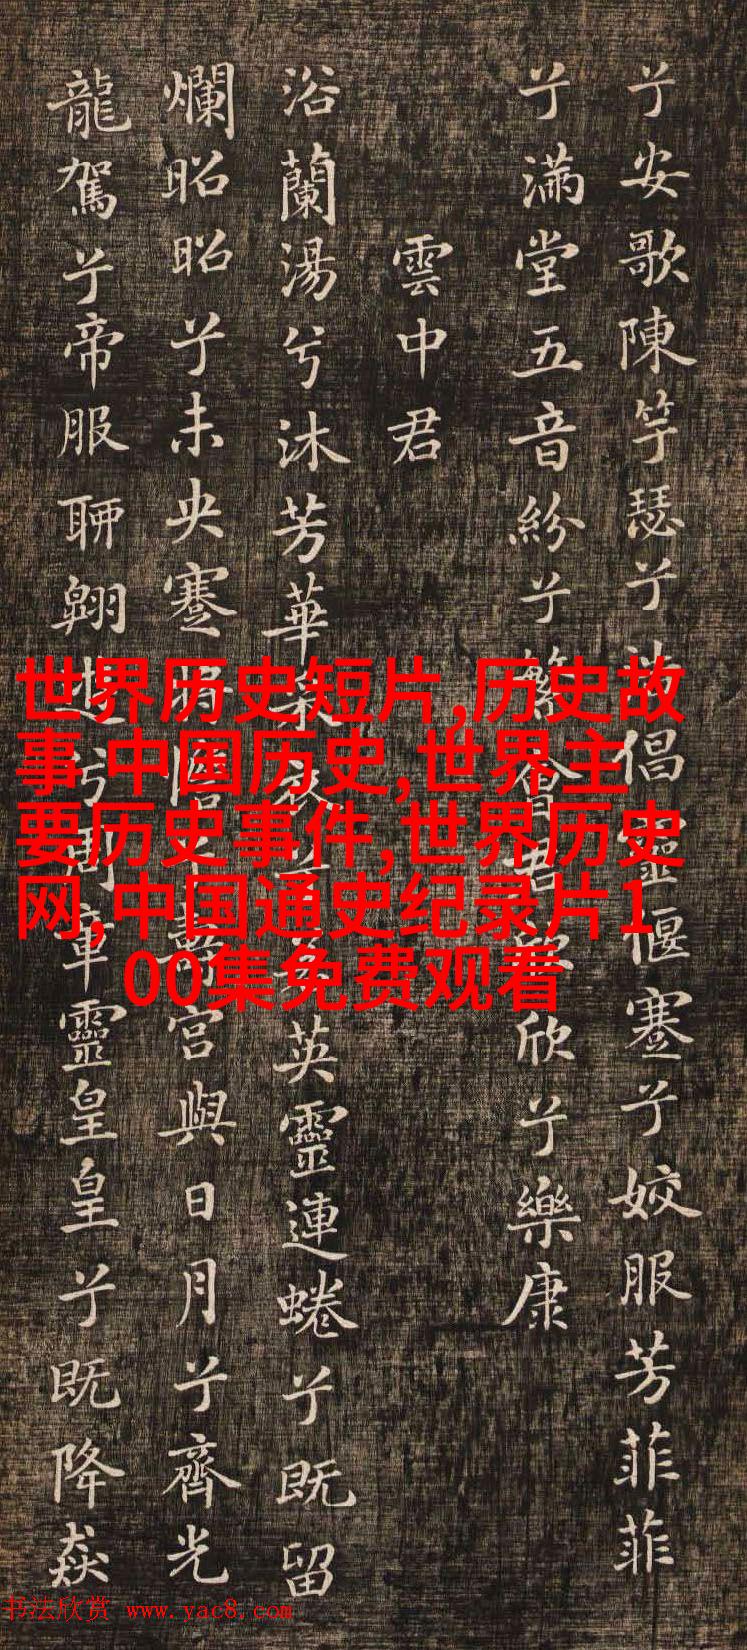 兮安歌陳竽瑟兮浩倡靈偃蹇兮姣服芳菲菲
兮滿堂五音紛兮繁會君欣欣兮樂康
雲中君
浴蘭湯兮沐芳華采衣兮若英靈連蜷兮既留
爛昭昭兮未央蹇將憺兮壽宮與日月兮齊光
龍駕兮帝服聊翱遊兮周章靈皇皇兮既降猋
世界历史短片,历史故
事,中国历史,世界主
要历史事件,世界历史
网,中国通史纪录片1
00集免费观看
书法欣赏 www.yac8.com